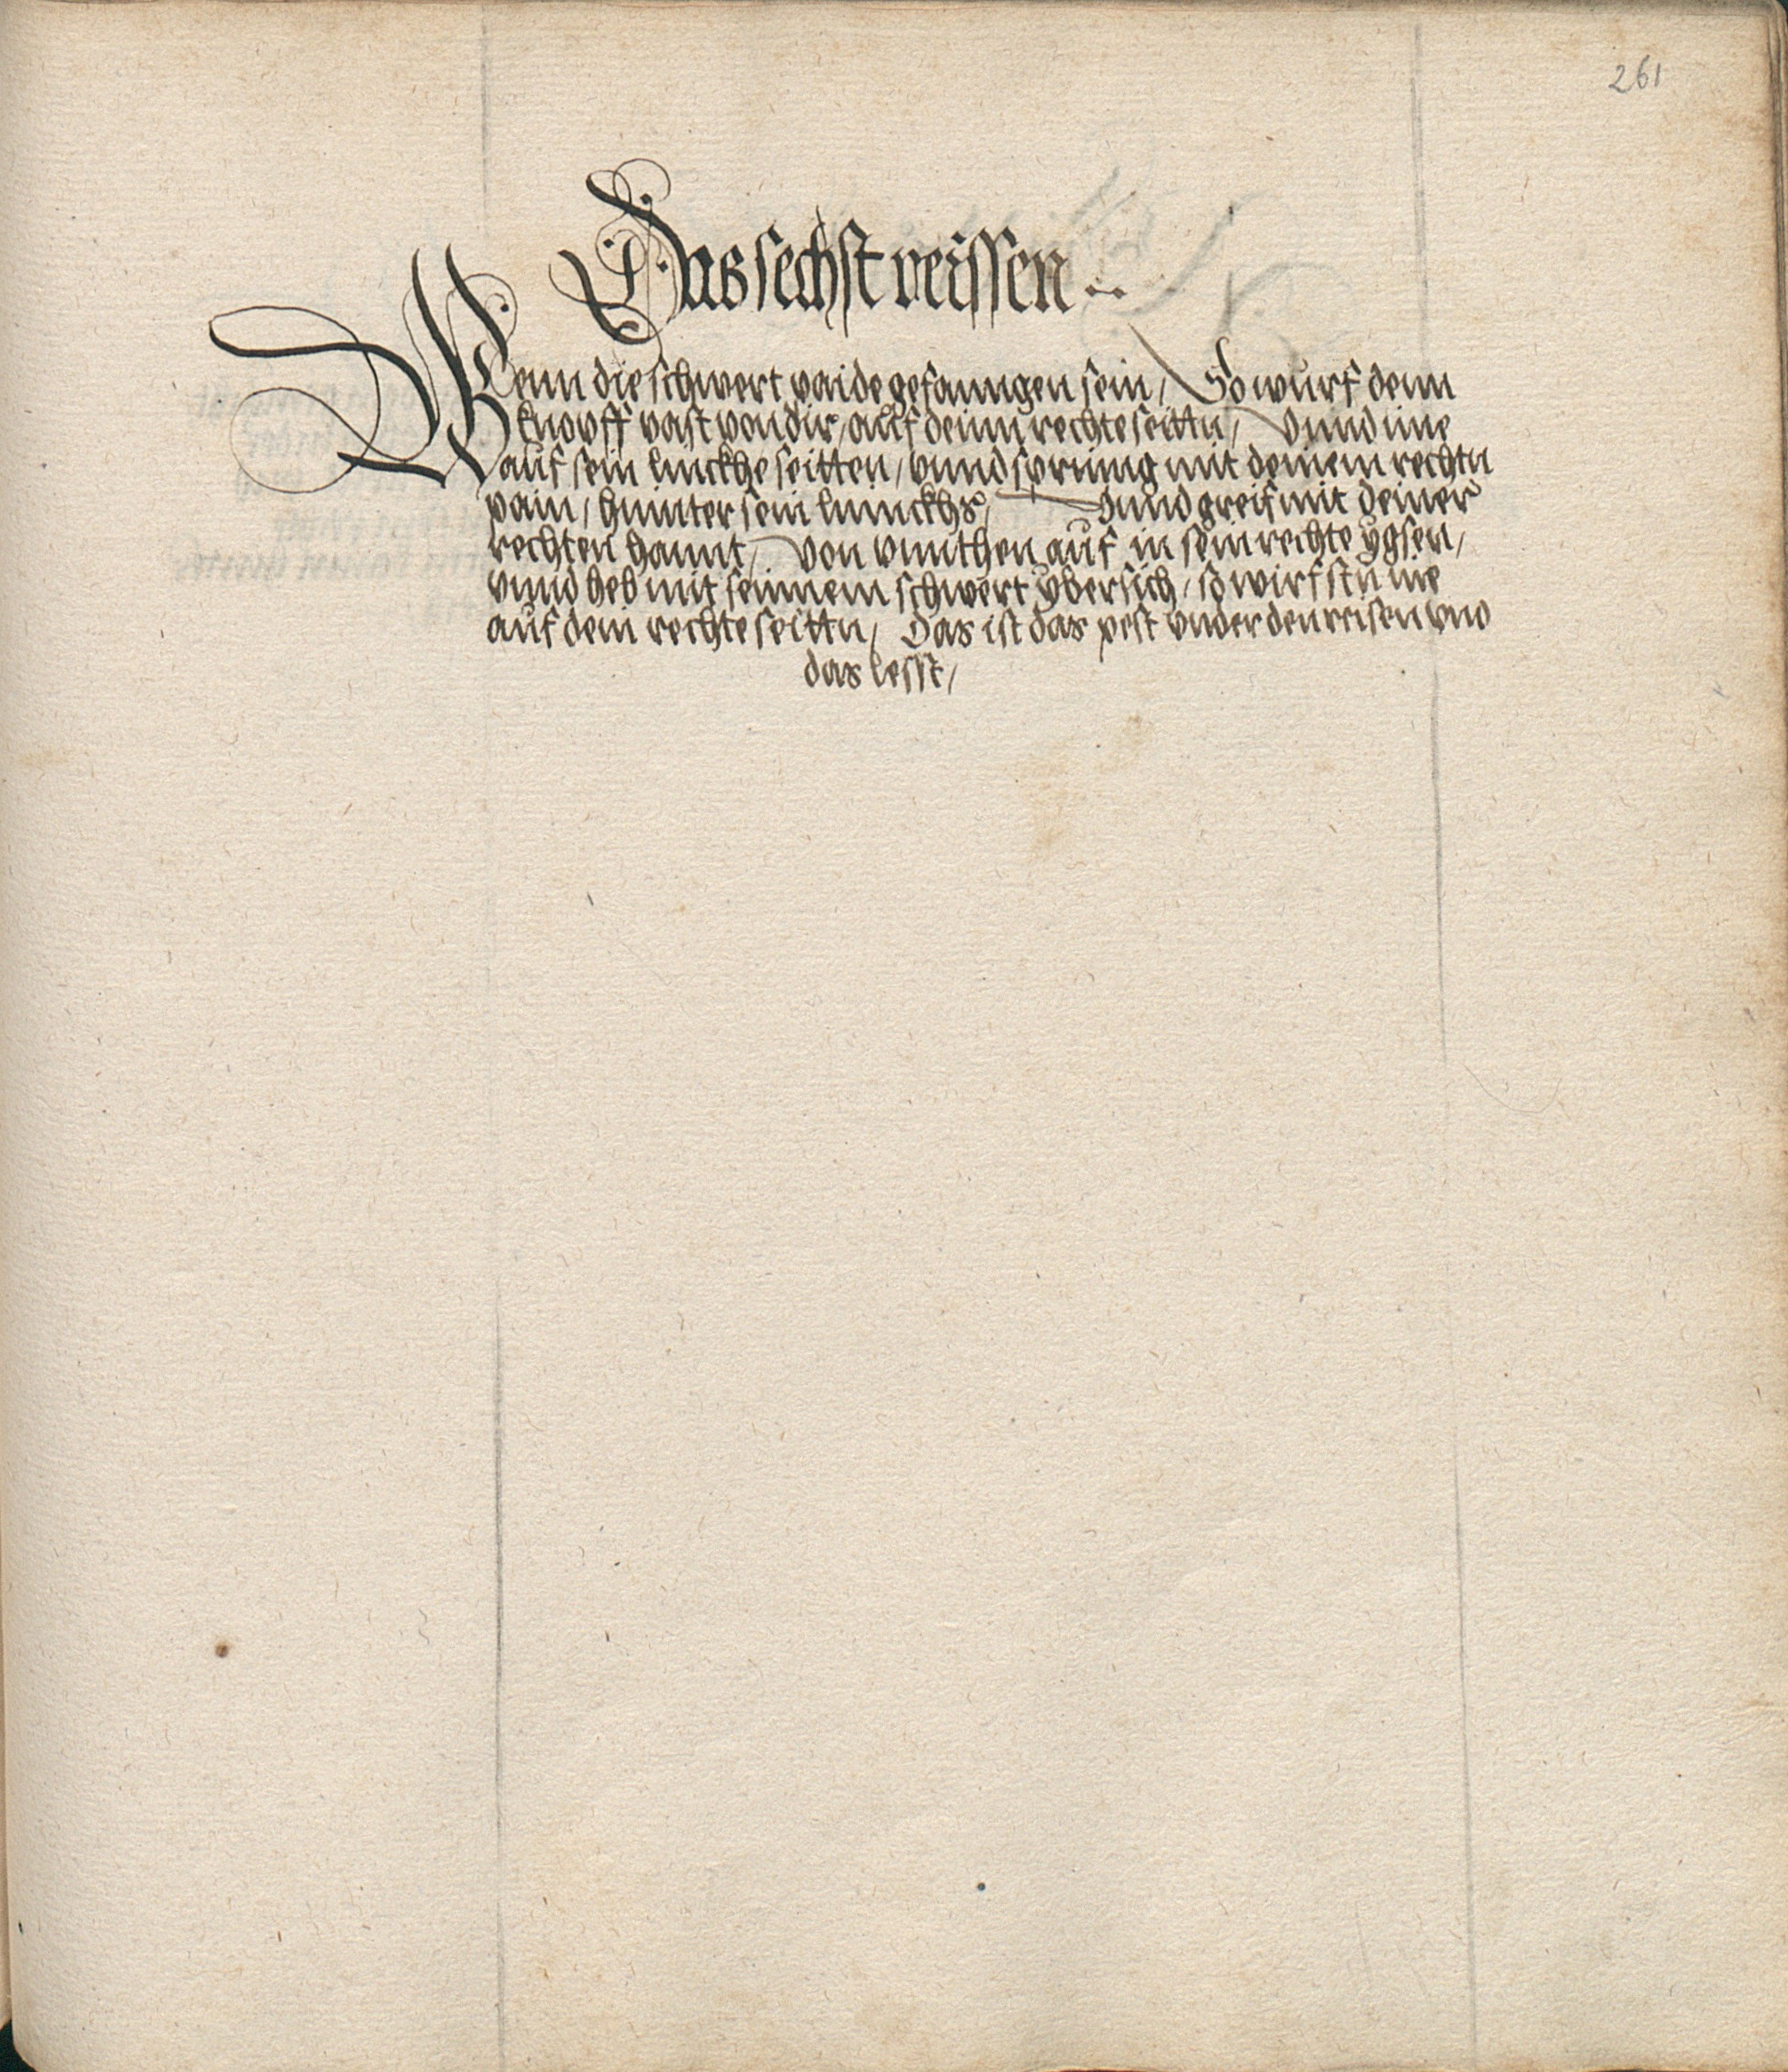 261
Das sechst reissen
Wenn die schwert paide gefanngen sein / So wurf denn
knopff vast von dir / auf deinn rechte seittn / Vnnd ime
auf sein linckhe seitten / vnnd spring mit deinem rechtn
pain / hinnter sein linnckhs / Vnnd greif mit deiner
rechten hannt / von vnnthen auf in sein rechte ygsen /
vnnd heb mit seinnem schwert ybersich / so wirfstu ine
auf dein rechte seittn / Das ist das pest vnder den reisen vnd
das lesst /